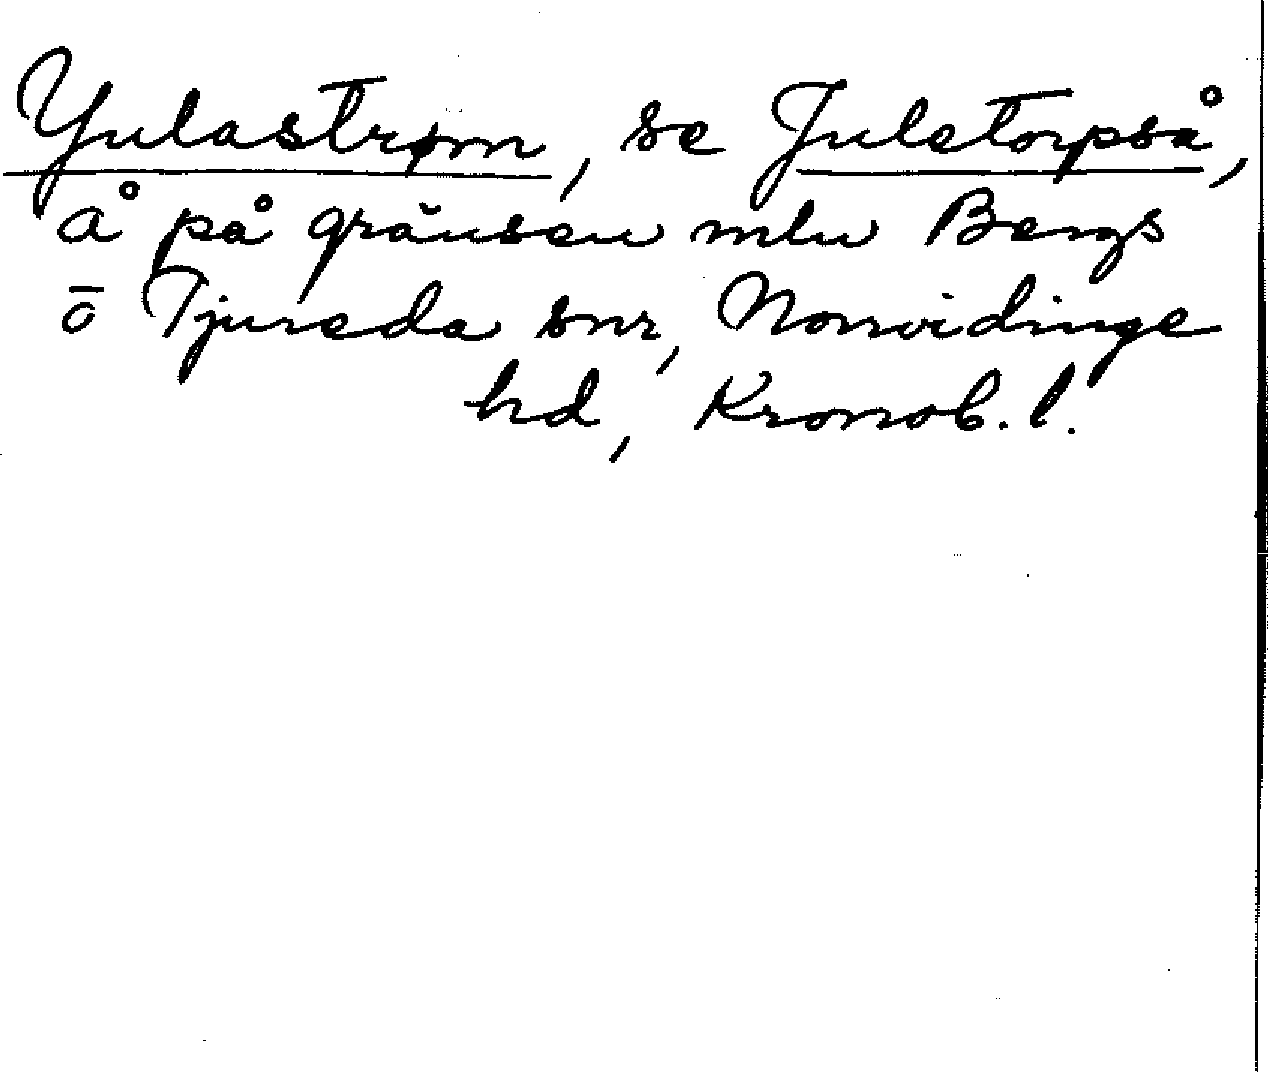 Yulastrøm, se Juletorpså,
å på gränsen mln Bergs
ō Tjureda snr, Norrvidinge
hd, Kronob. l.